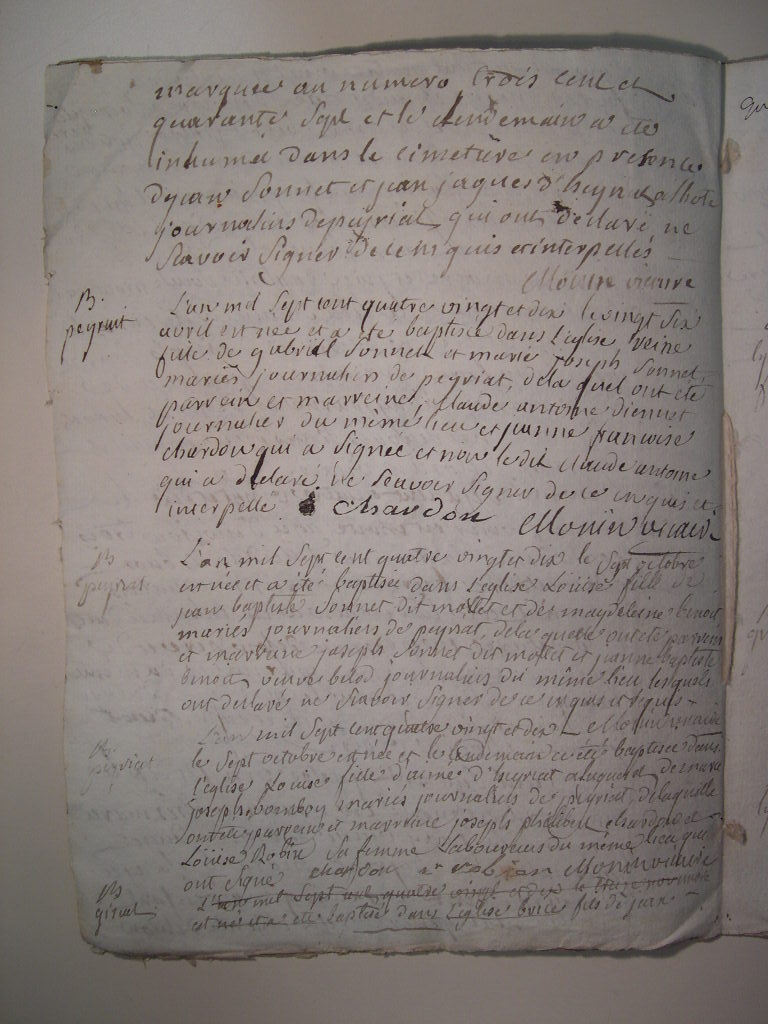 marquée au numero trois cent et
quarante sept et le lendemain a été
inhumé dans le cimetiere en présence
de jean Sonnet et jean jaques d'heyriat
journaliers de peyriat qui ont déclaré ne
scavoir signer de ce enquis et interpellés
Monin vicaire
B.
peyriat
L'an mil sept cent quatre vingt et dix le vingt six
avril est née et a été baptisée dans L'église reine
fille de gabriel Sonnet et marie joseph Sonnet
mariés journaliers de peyriat, de la quel ont été
parrein et marreine, claude antoine
journalier du même lieu et jeanne francoise
chardon qui a signée et non le dit claude antoine
qui a déclaré ne scavoir signer de ce enquis et
interpellé chardon Monin vicaire
B
peyriat
L'an mil sept cent quatre vingt et dix le sept octobre
est née et a été baptisée dans L'église Louise fille de
jean baptiste Sonnet dit mollet et de magdeleine benoit
mariés journaliers de peyriat, de la quelle ont été parrein
et marreine joseph Sonnet dit mollet et jeanne baptiste
benoit veuve belod journaliers du même lieu lesquels
ont déclaré ne scavoir signer de ce enquis et requis
Monin vicaire
B.
peyriat
L'an mil sept cent quatre vingt et dix
le sept octobre est née et le lendemain a été baptisée dans
l'église Louise fille d'aimé d'heyriat et de marie
joseph mariés journaliers de peyriat, de laquelle
ont été parrein et marreine joseph philibert chardon et
Louise Robin sa femme Laboureurs du même lieu qui
ont signé chardon robin Monin vicaire
B
L'an mil sept cent quatre vingt et dix le novembre
est né et a été baptisé dans L'église fils de jean